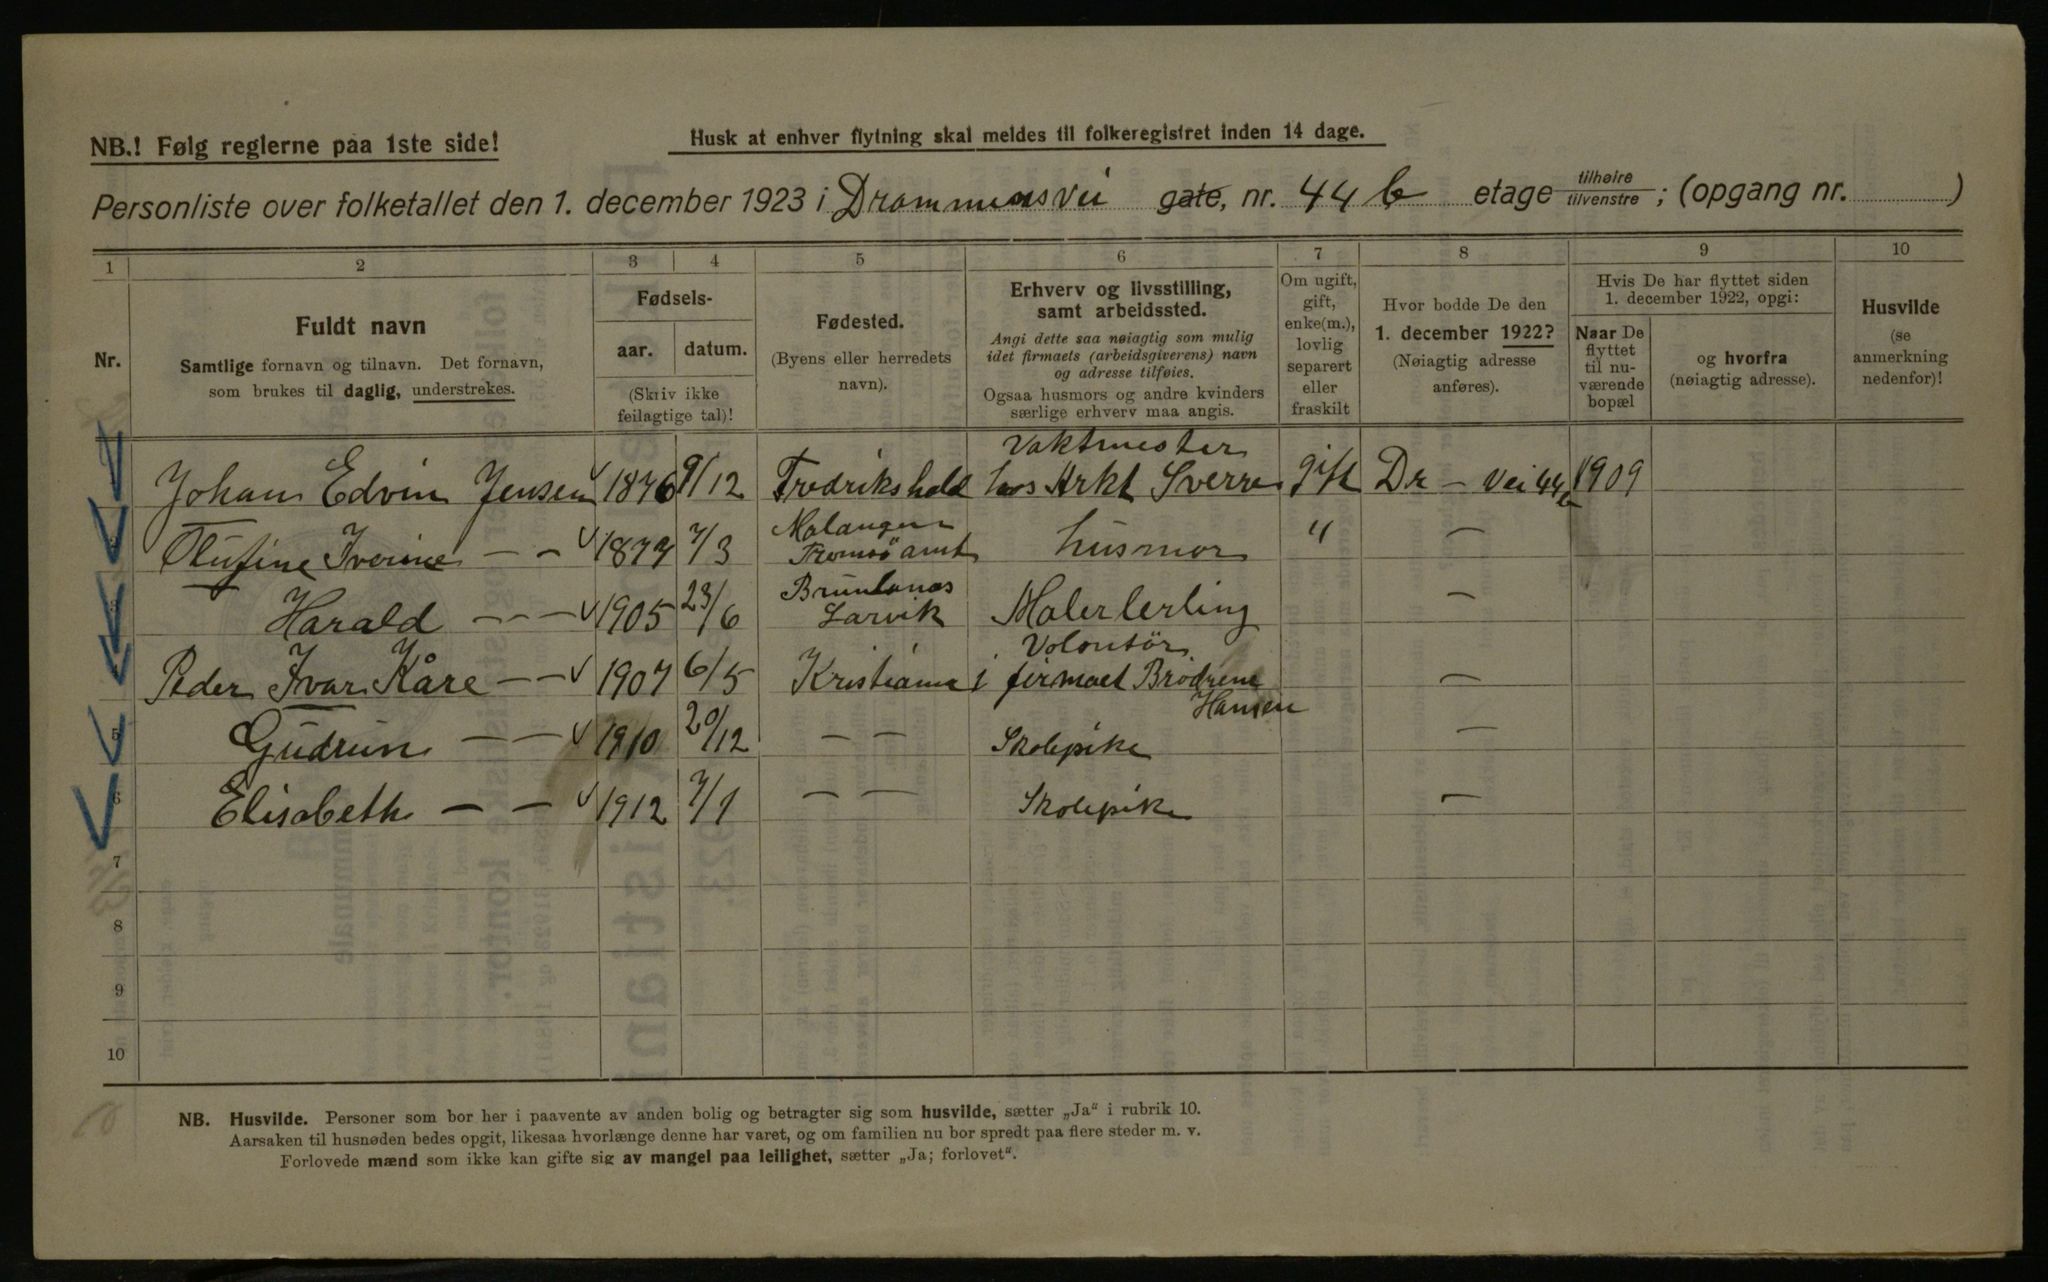 NB.! Følg reglerne paa 1ste side!
Husk at enhver flytning skal meldes til folkeregistret inden 14 dage.
Personliste over folketallet den 1. december 1923 i Drammensvei gate, nr. 44 b etage tilhøire tilvenstre ; (opgang nr. )
1 2 3 4 5 6 7 8 9 10
Nr.
Fuldt navn
Samtlige fornavn og tilnavn. Det fornavn,
som brukes til daglig, understrekes.
Fødsels-
aar. datum.
(Skriv ikke
feilagtige tal)!
Fødested.
(Byens eller herredets
navn).
Erhverv og livsstilling,
samt arbeidssted.
Angi dette saa nøiagtig som mulig
idet firmaets (arbeidsgiverens) navn
og adresse tilføies.
Ogsaa husmors og andre kvinders
særlige erhverv maa angis.
Om ugift,
gift,
enke(m.),
lovlig
separert
eller
fraskilt
Hvor bodde De den
1. december 1922?
(Nøiagtig adresse
anføres).
Hvis De har flyttet siden
1. december 1922, opgi:
Naar De
flyttet
til nu-
værende
bopæl
og hvorfra
(nøiagtig adresse).
Husvilde
(se
anmerkning
nedenfor)!
Vaktmester
Johan Edvin Jensen 1876 9/12 Fredrikshald hos Arkt Sverre gift Dr - vei 44b 1909
Malangen
2 Olufine Iverine - - 1877 7/3 Tromsö amt husmor " -
Brunlanæs
3 Harald - - - 1905 23/6 Larvik Malerlerling -
Volontör
4 Peder Ivar Kåre - - 1907 6/5 Kristiania i firmaet Brödrene -
Hansen
5 Gudrun - - 1910 20/12 - - Skolepike -
6 Elisabeth - - 1912 7/1 - - Skolepike -
7
8
9
10
NB. Husvilde. Personer som bor her i paavente av anden bolig og betragter sig som husvilde, sætter „Ja“ i rubrik 10.
Aarsaken til husnøden bedes opgit, likesaa hvorlænge denne har varet, og om familien nu bor spredt paa flere steder m. v.
Forlovede mænd som ikke kan gifte sig av mangel paa leilighet, sætter „Ja; forlovet“.